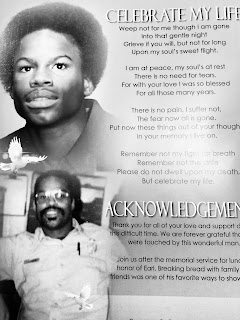 CELEBRATE MY LIFE
Weep not for me though I am gone
Into that gentle night
Grieve if you will, but not for long
Upon my soul's sweet flight.
I am at peace, my soul's at rest
There is no need for tears.
For with your love I was so blessed
For all those many years.
There is no pain, I suffer not,
The fear now all is gone.
Put now these things out of your though
In your memory I live on.
Remember not my fight for breath
Remember not the strife
Please do not dwell upon my death,
But celebrate my life.
ACKNOWLEDGEMEN
Thank you for all of your love and support d
this difficult time. We are forever grateful tha
were touched by this wonderful man.
Join us after the memorial service for lunc
honor of Earl. Breaking bread with family
friends was one of his favorite ways to show